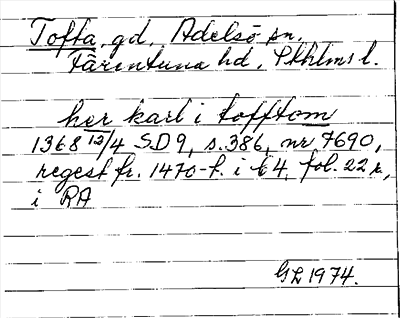 Tofta, gd, Adelsö sn,
Färentuna hd, Sthlms l.
her karl i tofftom
1368 12/4 SD 9, s. 386, nr 7690,
regest fr. 1470-t. i C 4, fol. 22 r,
i RA
GL 1974.